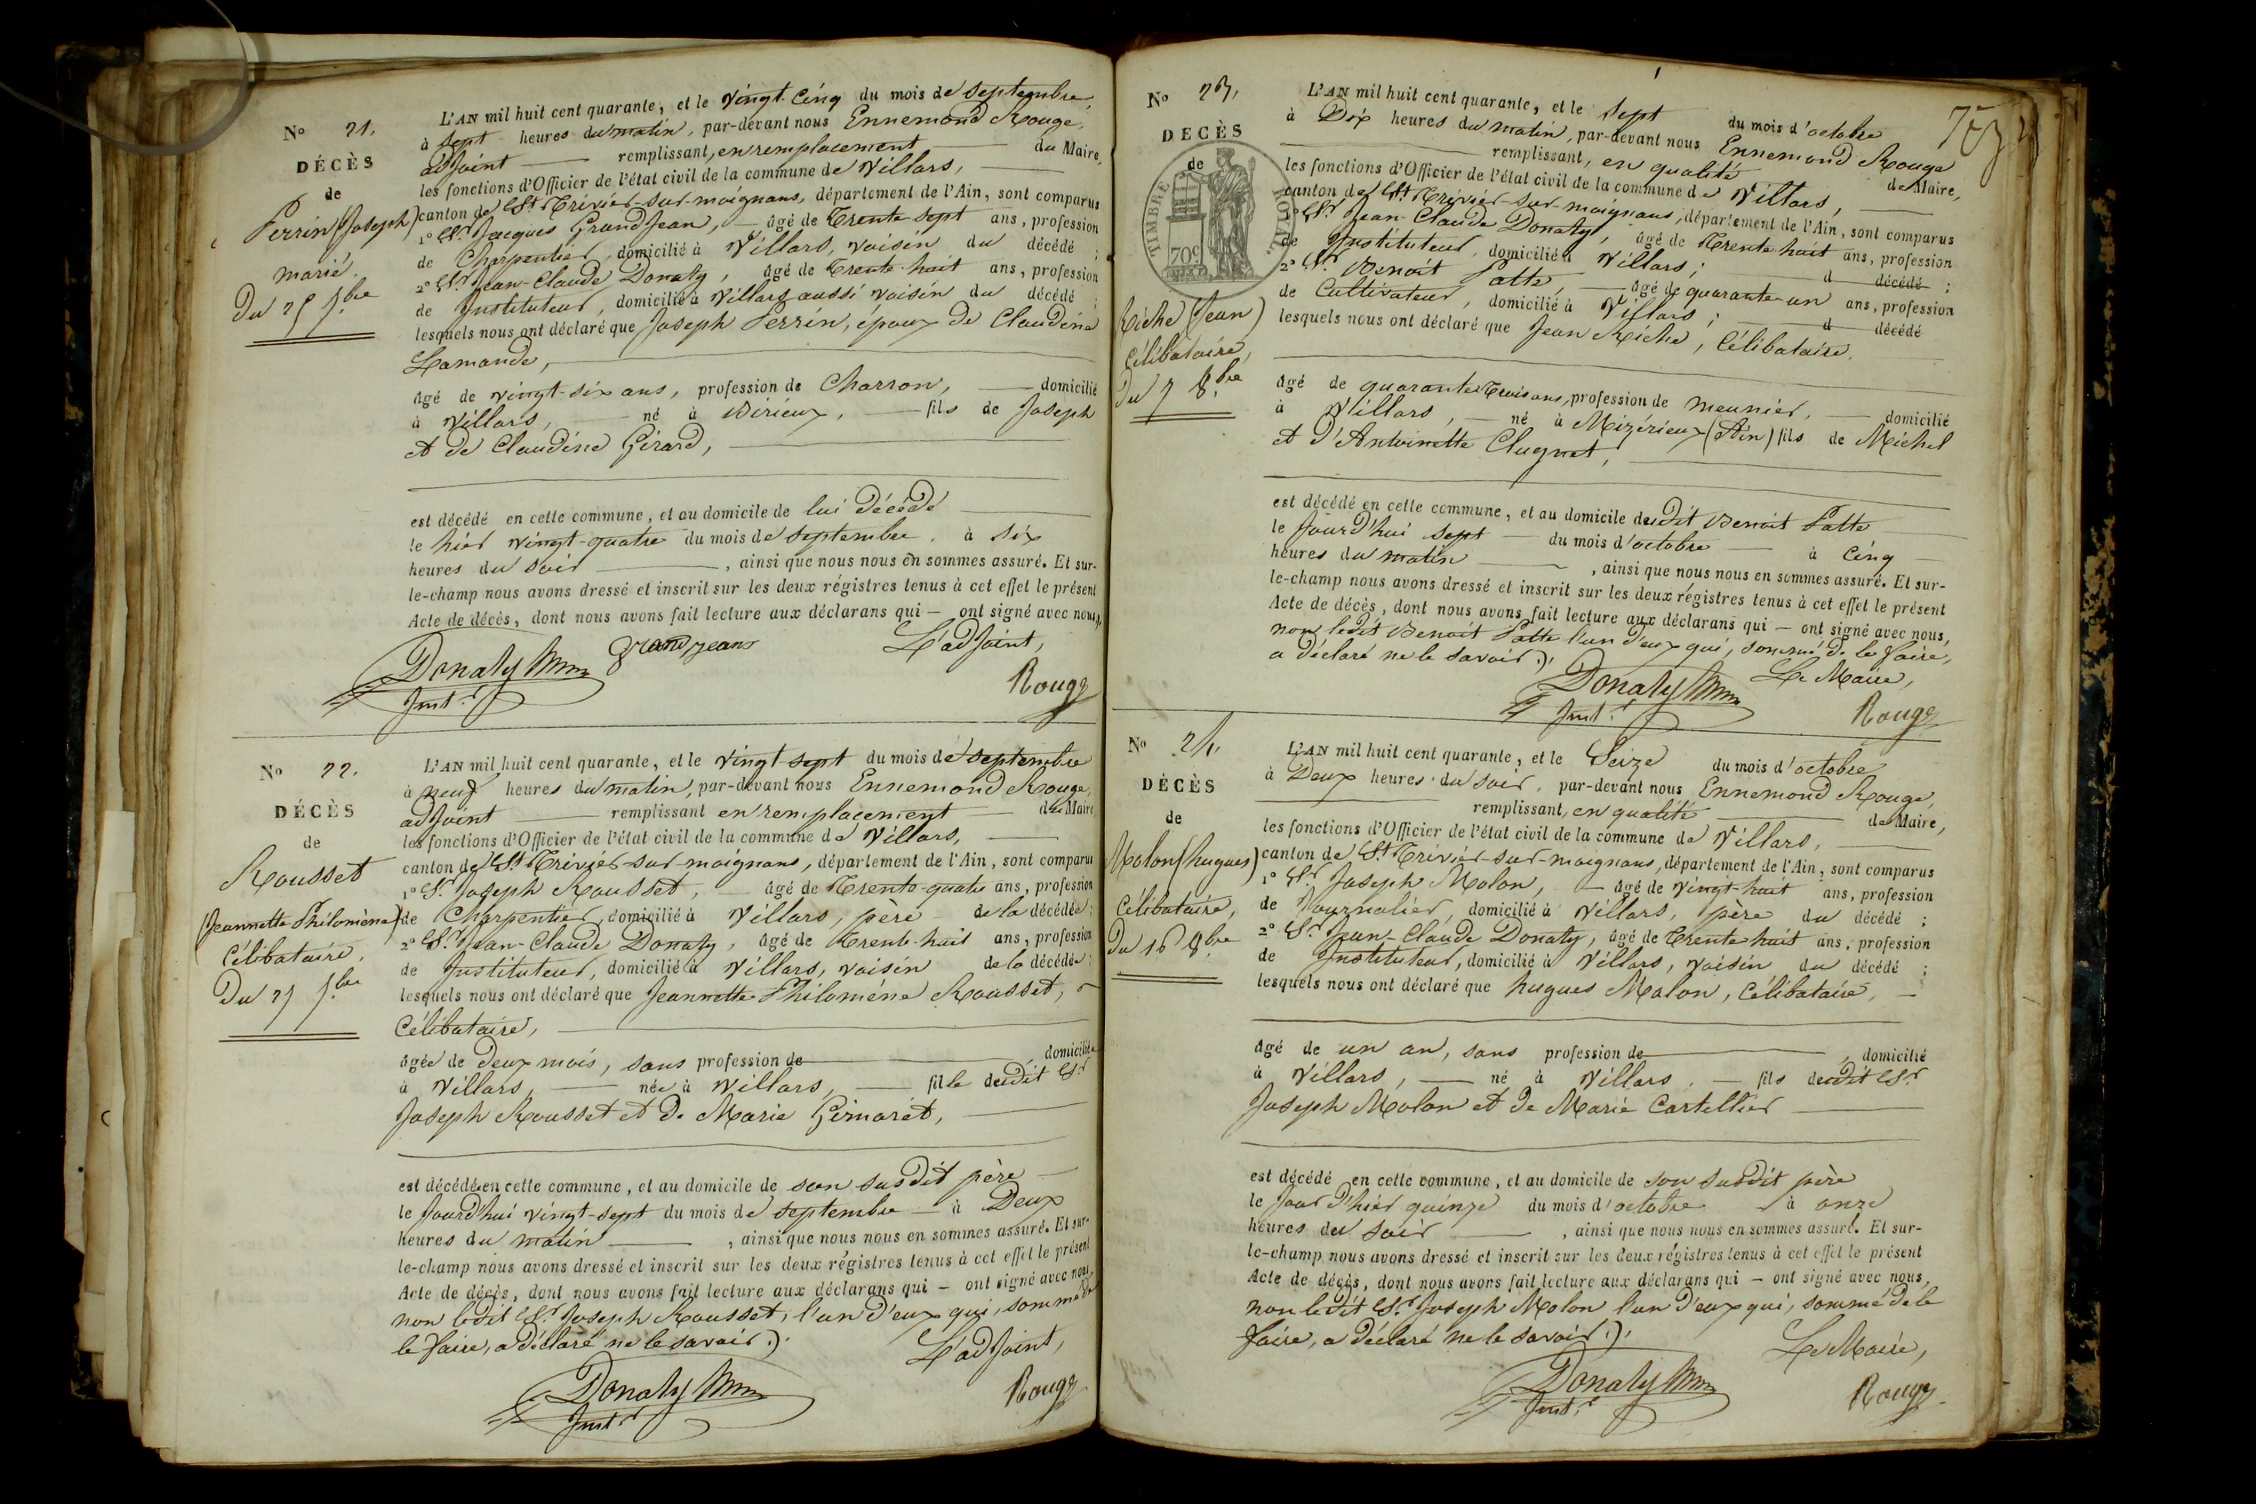 N° 21.
DÉCÈS
de
Perrin (Joseph)
marié.
Du 25 7.bre
L'AN mil huit cent quarante, et le vingt-cinq du mois de septembre,
à sept heures du matin, par-devant nous Ennemond Rouge,
adjoint remplissant, en remplacement du Maire,
les fonctions d'Officier de l'état civil de la commune de Villars,
canton de St Trivier-sur-moignans, département de l'Ain, sont comparus
1° Sr. Jacques Grandjean, âgé de trente-sept ans, profession
de Charpentier, domicilié à Villars, voisin du décédé ;
2° Sr. Jean-Claude Donaty, âgé de trente-huit ans, profession
de Instituteur, domicilié à Villars aussi voisin du décédé ;
lesquels nous ont déclaré que Joseph Perrin, époux de Claudine
Lamande,
âgé de vingt-six ans, profession de Charron, domicilié
à Villars, né à Birieux, fils de Joseph
et de Claudine Girard,
est décédé en cette commune, et au domicile de lui décédé
le hier vingt-quatre du mois de septembre, à six
heures du soir , ainsi que nous nous en sommes assuré. Et sur-
le-champ nous avons dressé et inscrit sur les deux régistres tenus à cet effet le présent
Acte de décès, dont nous avons fait lecture aux déclarans qui — ont signé avec nous.
Donaty
Instr.
grandjean
L'adjoint,
Rouge
N° 22.
DÉCÈS
de
Rousset
(Jeannette Philomène)
Célibataire.
Du 27 7.bre
L'AN mil huit cent quarante, et le vingt-sept du mois de septembre
à neuf heures du matin, par-devant nous Ennemond Rouge,
adjoint remplissant en remplacement du Maire
les fonctions d'Officier de l'état civil de la commune de Villars,
canton de St Trivier-sur-moignans, département de l'Ain, sont comparus
1° Sr. Joseph Rousset, âgé de trente-quatre ans, profession
de Charpentier, domicilié à Villars, père de la décédée ;
2° Sr. Jean-Claude Donaty, âgé de trente-huit ans, profession
de Instituteur, domicilié à Villars, voisin de la décédée ;
lesquels nous ont déclaré que Jeannette Philomène Rousset,
Célibataire,
âgée de deux mois, sans profession de , domiciliée
à Villars, née à Villars, fille dudit Sr
Joseph Rousset et de Marie Gimaret,
est décédée en cette commune, et au domicile de son susdit père
le jourd'hui vingt-sept du mois de septembre — à Deux
heures du matin , ainsi que nous nous en sommes assuré. Et sur-
le-champ nous avons dressé et inscrit sur les deux régistres tenus à cet effet le présent
Acte de décès, dont nous avons fait lecture aux déclarans qui — ont signé avec nous,
non ledit Sr. Joseph Rousset, l'un d'eux qui, sommé de
le faire, a déclaré ne le savoir).
L'adjoint,
Donaty
Instr
Rouge
N° 23.
DÉCÈS
de
TIMBRE ROYAL
70c
Riche (Jean)
Célibataire,
Du 7 8.bre
L'AN mil huit cent quarante, et le sept du mois d'octobre
à Dix heures du matin, par-devant nous Ennemond Rouge
remplissant, en qualité de Maire,
les fonctions d'Officier de l'état civil de la commune de Villars,
canton de St Trivier-sur-moignans, département de l'Ain, sont comparus
1° Sr. Jean-Claude Donaty, âgé de trente-huit ans, profession
de Instituteur, domicilié à Villars ; d décédé ;
2° Sr. Benoit Patte, âgé de quarante-un ans, profession
de Cultivateur, domicilié à Villars ; d décédé
lesquels nous ont déclaré que Jean Riche, Célibataire.
âgé de quarante-trois ans, profession de meunier, domicilié
à Villars, né à Mizérieux (Ain) fils de Michel
et d'Antoinette Clugnet,
est décédé en cette commune, et au domicile dudit Benoit Patte
le jourd'hui sept du mois d'octobre à cinq
heures du matin , ainsi que nous nous en sommes assuré. Et sur-
le-champ nous avons dressé et inscrit sur les deux régistres tenus à cet effet le présent
Acte de décès, dont nous avons fait lecture aux déclarans qui — ont signé avec nous,
non ledit Benoit Patte l'un d'eux qui, sommé de le faire,
a déclaré ne le savoir).
Le Maire,
Donaty
Instr.
Rouge
N° 24.
DÉCÈS
de
Molon (hugues)
Célibataire,
Du 16 8.bre
L'AN mil huit cent quarante, et le Seize du mois d'octobre
à Deux heures du soir, par-devant nous Ennemond Rouge,
remplissant, en qualité de Maire,
les fonctions d'Officier de l'état civil de la commune de Villars,
canton de St Trivier-sur-moignans, département de l'Ain, sont comparus
1° Sr. Joseph Molon, — âgé de vingt-huit ans, profession
de Journalier, domicilié à Villars, père du décédé ;
2° Sr. Jean-Claude Donaty, âgé de trente-huit ans, profession
de Instituteur, domicilié à Villars, voisin du décédé ;
lesquels nous ont déclaré que hugues Molon, Célibataire,
âgé de un an, sans profession de , domicilié
à Villars, né à Villars, fils dudit Sr
Joseph Molon et de Marie Cartellier
est décédé en cette commune, et au domicile de son susdit père
le jour d'hier quinze du mois d'octobre à onze
heures du soir , ainsi que nous nous en sommes assuré. Et sur-
le-champ nous avons dressé et inscrit sur les deux régistres tenus à cet effet le présent
Acte de décès, dont nous avons fait lecture aux déclarans qui — ont signé avec nous,
non ledit Sr. Joseph Molon l'un d'eux qui, sommé de le
faire, a déclaré ne le savoir).
Le Maire,
Donaty
Instr.
Rouge